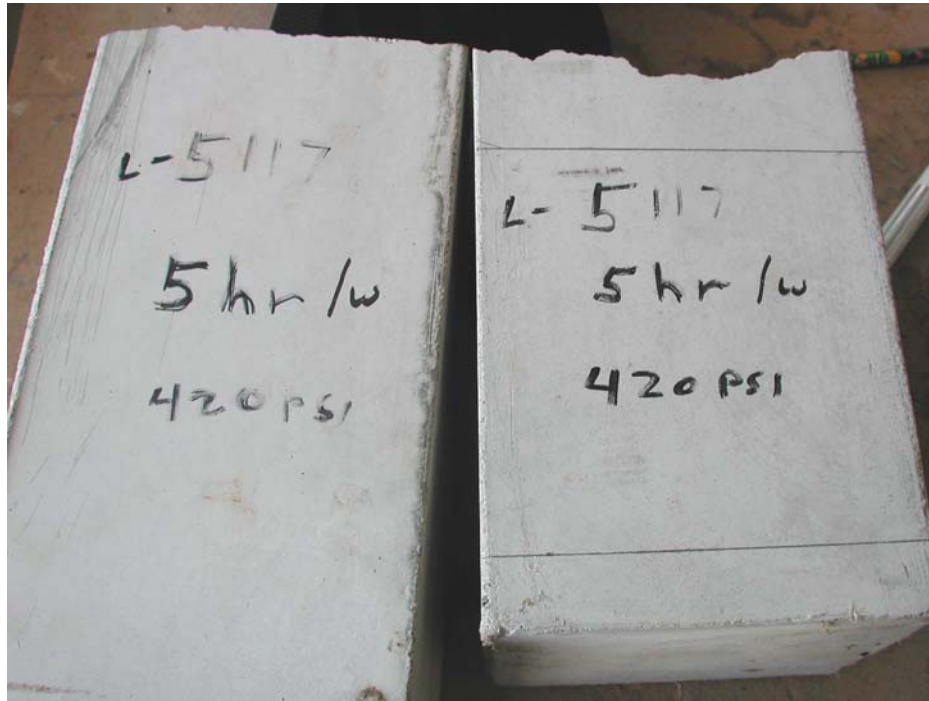 L-5117
5hr/w
420 PSI
L-5117
5hr/w
420 PSI